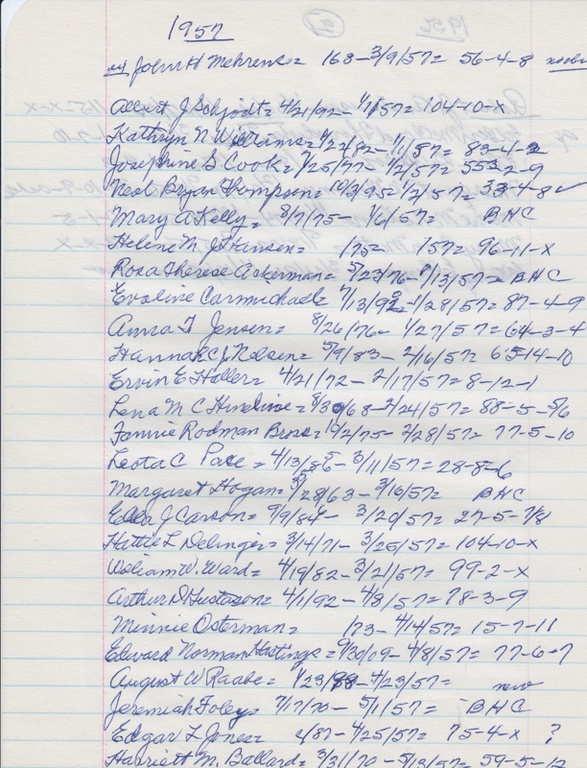 1957
John H Mehrens = 168 - 3/9/57 = 56-4-8
Albert J Schjodt = 4/21/92 - 1/1/57 = 104-10-X
Kathryn N Williams = 4/22/82 - 1/1/57 = 83-4-2
Josephine S Cook = 7/25/77 - 1/2/57 = 2-9
Ned Bryan Thompson = 10/3/95 = 1/2/57 = 33-4-8
Mary A Kelly = 8/7/75 - 1/6/57 = BHC
Helene M J Hansen = 175 = 157 = 96-11-X
Rosa Therese Ackerman = 5/27/76 - 1/13/57 = BHC
Evaline Carmichael = 7/13/92 - 1/28/57 = 87-4-9
Anna T Jensen = 8/26/76 - 1/27/57 = 64-3-4
Hannah C J Nelsen = 5/9/83 - 2/16/57 = 65-14-10
Ervin E Holler = 4/21/72 - 2/17/57 = 8-12-1
Lena M C = - 2/24/57 = 88-5-5/6
Fannie Rodman Brose = 10/2/75 - 2/28/57 = 77-5-10
Leota C Pace = 4/13/ - 3/11/57 = 28-8-6
Margaret Hogan = /28/63 - 3/16/57 = BHC
Ella J Carson = 9/9/84 - 3/20/57 = 27-5-7/8
Hettie L Delinger = 3/14/71 - 3/25/57 = 104-10-X
William W. Ward = 4/19/82 - 3/21/57 = 99-2-X
Arthur D Gustason = 4/1/92 - 4/8/57 = 78-3-9
Minnie Osterman = 173 - 4/14/57 = 15-7-11
Edward Norman Hastings = 9/30/09 - 4/8/57 = 77-6-7
August W Raabe = 1/23/88 - 4/23/57 = new
Jeremiah Foley = 7/17/70 - 5/1/57 = BHC
Edgar L Jones = /87 - 4/25/57 = 75-4-X ?
Harriett M. Ballard = 3/31/70 - 5/13/57 = 59-5-12